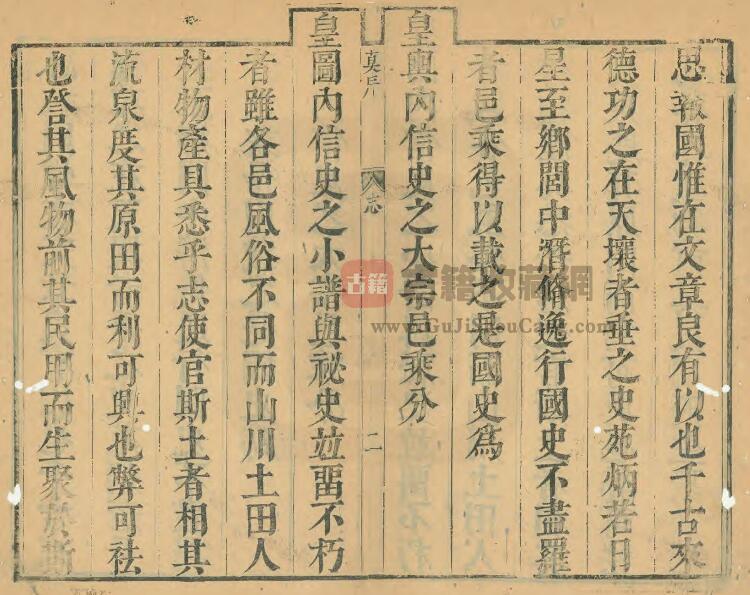 思報國惟在文章良有以也千古來
德功之在天壤者垂之史苑炳若日
星至鄉閭中潛脩逸行國史不盡羅
者邑乘得以載之是國史為
皇輿內信史之大宗邑乘分
志
二
皇圖內信史之小譜與祕史並畱不朽
者雖各邑風俗不同而山川土田人
材物產具悉乎志使官斯土者相其
流泉度其原田而利可興也弊可祛
也登其風物前其民用而生聚於斯
古籍
古籍收藏網
www.GuJiShouCang.com